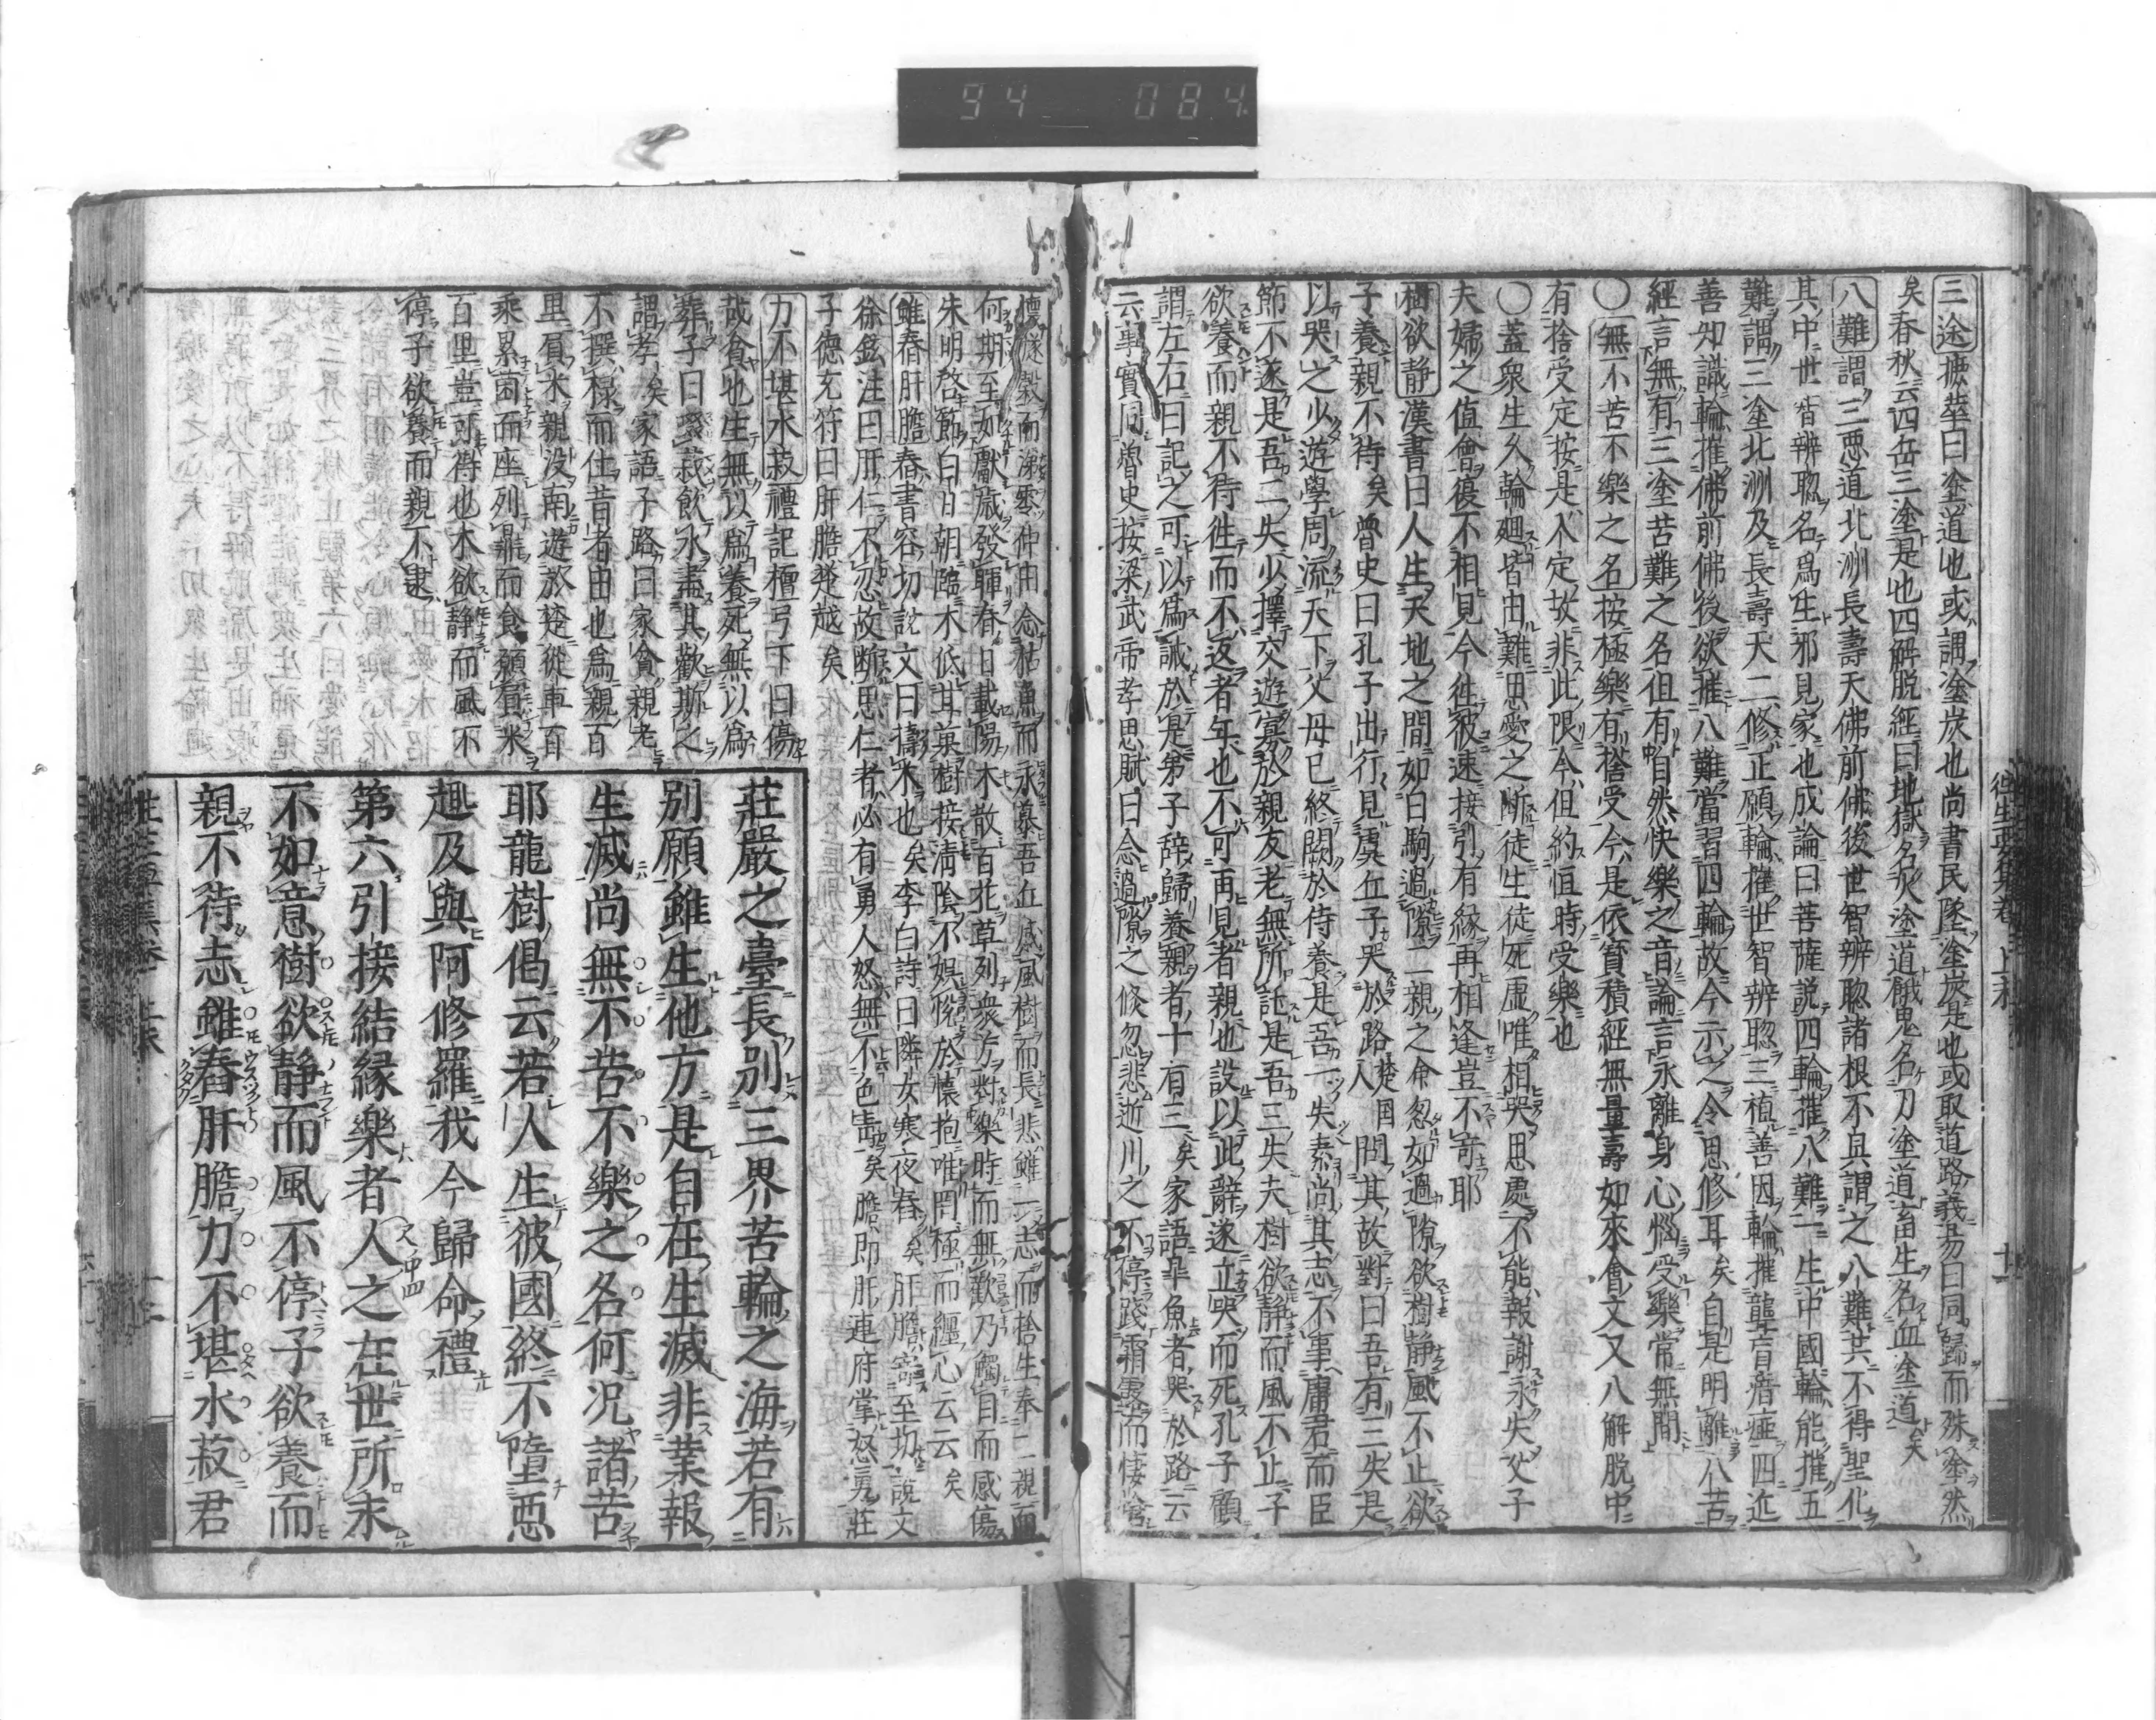 94 084
三途摭華曰塗道也或謂塗炭也尚書民墜塗炭是也或取道路義易曰同歸而殊塗然
矣春秋云四岳三塗是也四解脱經曰地獄名火塗道餓鬼名刀塗道畜生名血塗道矣
八難謂三惡道北洲長壽天佛前佛後世智辨聡諸根不具謂之八難共不得聖化
其中世智辨聡名爲生邪見家也成論曰菩薩説四輪摧八難一生中國輪能摧五
難謂三塗北洲及長壽天二修正願輪摧世智辨聡三植善因輪摧聾盲瘖瘂四近
善知識輪摧佛前佛後欲摧八難當習四輪故今示之令思修耳矣自是明離八苦
經言無有三塗苦難之名但有自然快樂之音論言永離身心惱受樂常無間
〇無不苦不樂之名按極樂有捨受今是依寶積經無量壽如來會文又八解脱中
有捨受定按是入定故非此限今但約恒時受樂也
〇蓋衆生久輪廻皆由難思愛之斷徒生徒死虚唯相哭思處不能報謝永失父子
夫婦之值會復不相見今徃彼速接引有縁再相逢豈不奇耶
樹欲静漢書曰人生天地之間如白駒過隙二親之命忽如過隙欲樹静風不止欲
子養親不待矣魯史曰孔子出行見虞丘子哭於路人問其故對曰吾有三失是
以哭之少遊學周流天下父母已終闕於侍養是吾一失素尚其志不事庸君而臣
節不遂是吾二失少擇交遊寡於親友老無所託是吾三失夫樹欲静而風不止子
欲養而親不待徃而不返者年也不可再見者親也設以此辭遂立哭而死孔子顧
謂左右曰記之可以爲誡於是第子辞歸養親者十有三矣家語皐魚者哭於路云
云事實同魯史按梁武帝孝思賦曰念過隙之倏忽悲逝川之不停踐霜露而悽愴
懷燧穀而涕零仲由念枯魚而永慕吾丘感風樹而長悲雖一志而捨生奉二親而
何期至如獻歳發暉春日載陽木散百花草列衆芳對樂時而無歡乃觸目而感傷
朱明啓節白日朝臨木低其菓樹接淸陰不娯悅於懷抱唯罔極而纒心云云矣
雖舂肝膽舂書容切説文曰擣米也矣李白詩曰隣女寒夜舂矣肝膽説文
徐鉉注曰肝仁不忍故斷思仁者必有勇人怒無不色靑矣膽即肝連府掌怒勇莊
子德充符曰肝膽楚越矣
力不堪水菽禮記檀弓下曰傷
哉貧也生無以爲養死無以爲
葬子曰啜菽飮水盡其歡斯之
謂孝矣家語子路曰家貧親老
不撰祿而仕昔者由也爲親百
里負米親没南遊於楚從車百
乘累茵而座列鼎而食願負米
百里豈可得也木欲静而風不
停子欲養而親不逮
莊嚴之臺長別三界苦輪之海若有
別願雖生他方是自在生滅非業報
生滅尚無不苦不樂之名何況諸苦
耶龍樹偈云若人生彼國終不墮惡
趣及與阿修羅我今歸命禮
第六引接結縁樂者人之在世所求
不如意樹欲静而風不停子欲養而
親不待志雖舂肝膽力不堪水菽君